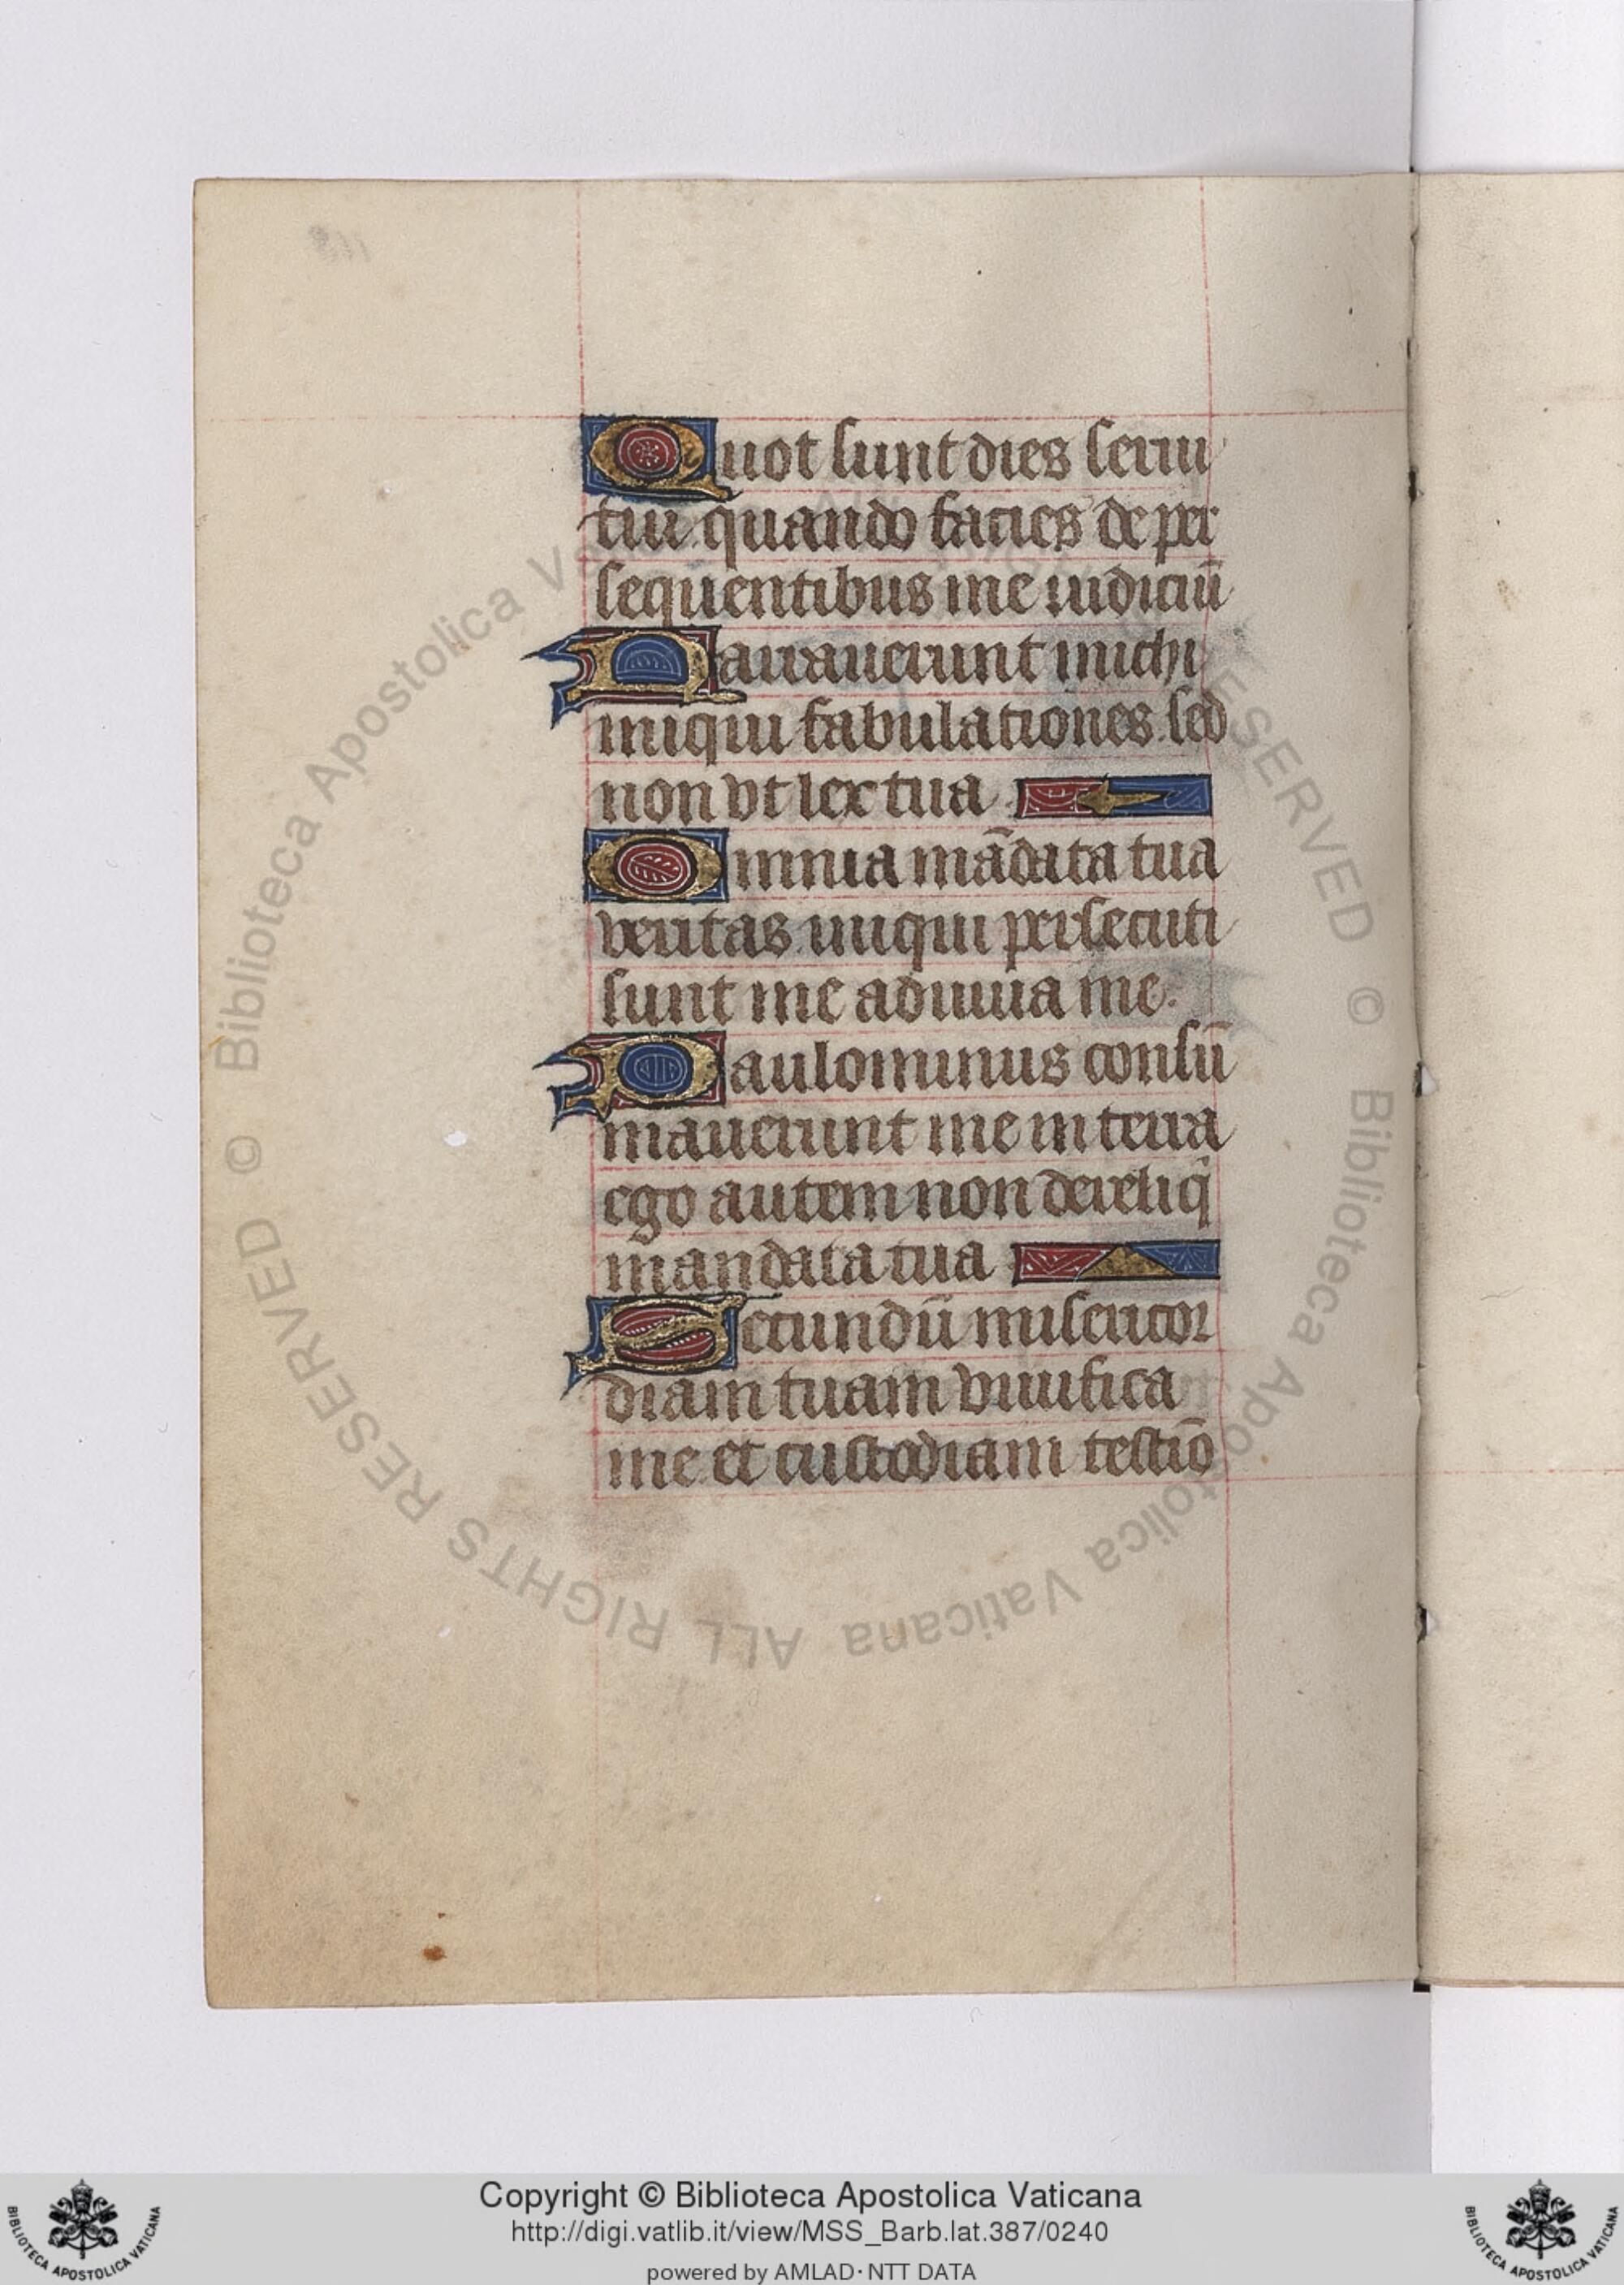 Quot sunt dies serui
tui. quando facies de per
sequentibus me iudiciū
Narrauerunt michi
iniqui fabulationes. sed
non vt lex tua
Omnia mādata tua
veritas. iniqui persecuti
sunt me adiuua me.
Paulominus consū
mauerunt me in terra
ego autem non dereliq̇
mandata tua
Secundū misericor
diam tuam viuifica
me. et custodiam testiō
© Biblioteca Apostolica Vaticana ALL RIGHTS RESERVED
Copyright © Biblioteca Apostolica Vaticana
http://digi.vatlib.it/view/MSS_Barb.lat.387/0240
powered by AMLAD·NTT DATA
BIBLIOTECA APOSTOLICA VATICANA
BIBLIOTECA APOSTOLICA VATICANA